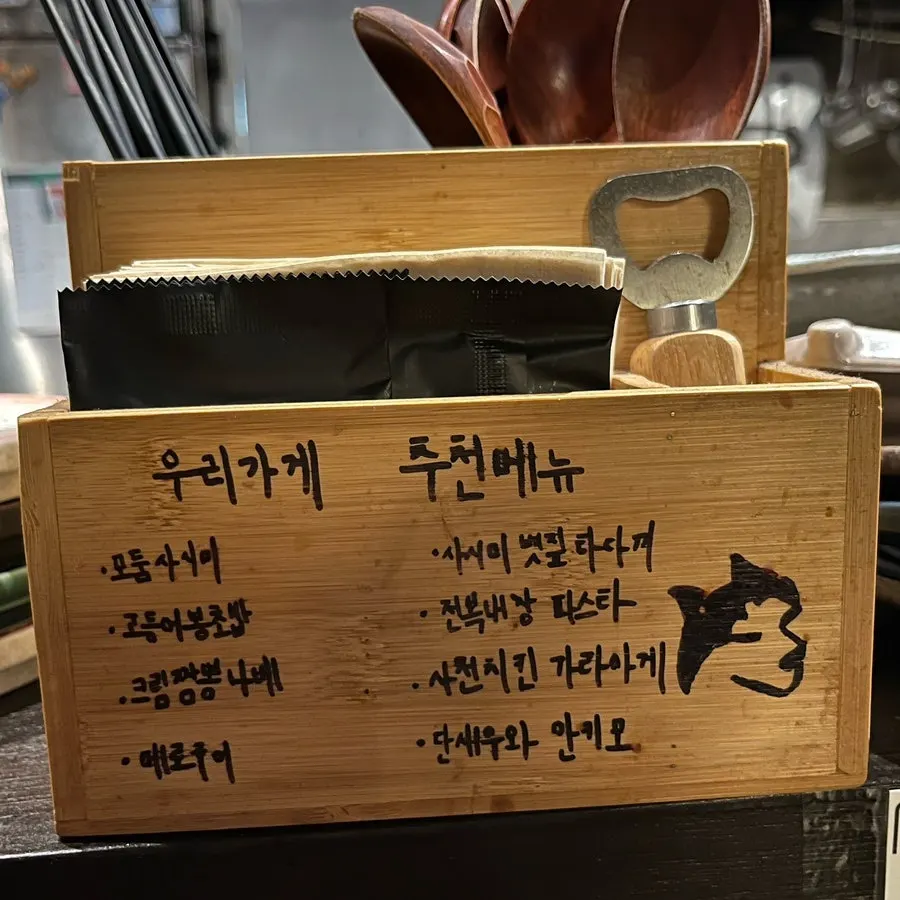 우리가게 추천메뉴
·모둠사시미
·고등어봉초밥
·크림짬뽕나베
·메로구이
·사시미 볏짚타다끼
·전복내장 파스타
·사천치킨 가라아게
·단새우와 안키모